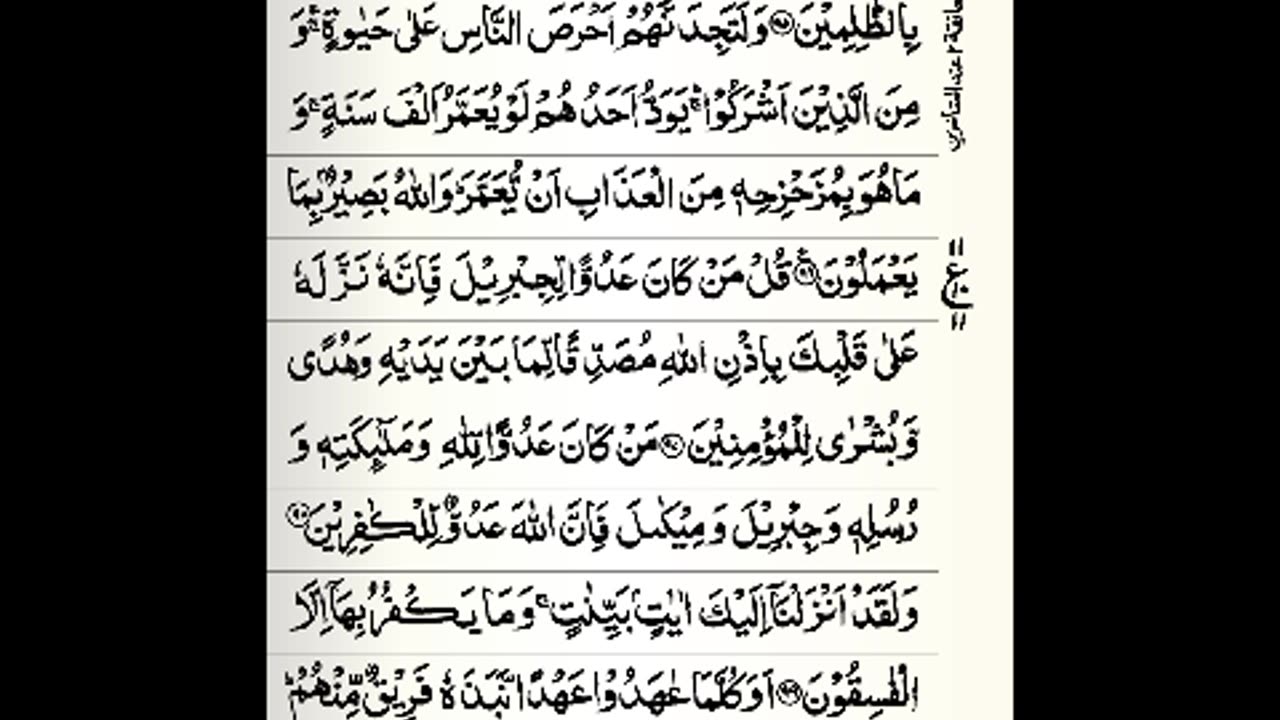 بِالظّٰلِمِيْنَ ۝۹۵ وَلَتَجِدَنَّهُمْ اَحْرَصَ النَّاسِ عَلٰى حَيٰوةٍ ۛۚ وَ
مِنَ الَّذِيْنَ اَشْرَكُوْا ۛۚ يَوَدُّ اَحَدُهُمْ لَوْ يُعَمَّرُ اَلْفَ سَنَةٍ ۚ وَ
مَا هُوَ بِمُزَحْزِحِهٖ مِنَ الْعَذَابِ اَنْ يُّعَمَّرَ ؕ وَاللّٰهُ بَصِيْرٌۢ بِمَا
يَعْمَلُوْنَ ۝۹۶ قُلْ مَنْ كَانَ عَدُوًّا لِّجِبْرِيْلَ فَاِنَّهٗ نَزَّلَهٗ
عَلٰى قَلْبِكَ بِاِذْنِ اللّٰهِ مُصَدِّقًا لِّمَا بَيْنَ يَدَيْهِ وَهُدًى
وَّبُشْرٰى لِلْمُؤْمِنِيْنَ ۝۹۷ مَنْ كَانَ عَدُوًّا لِّلّٰهِ وَمَلٰٓئِكَتِهٖ وَ
رُسُلِهٖ وَجِبْرِيْلَ وَمِيْكٰىلَ فَاِنَّ اللّٰهَ عَدُوٌّ لِّلْكٰفِرِيْنَ ۝۹۸
وَلَقَدْ اَنْزَلْنَاۤ اِلَيْكَ اٰيٰتٍۭ بَيِّنٰتٍ ۚ وَمَا يَكْفُرُ بِهَاۤ اِلَّا
الْفٰسِقُوْنَ ۝۹۹ اَوَكُلَّمَا عٰهَدُوْا عَهْدًا نَّبَذَهٗ فَرِيْقٌ مِّنْهُمْ ؕ
ع